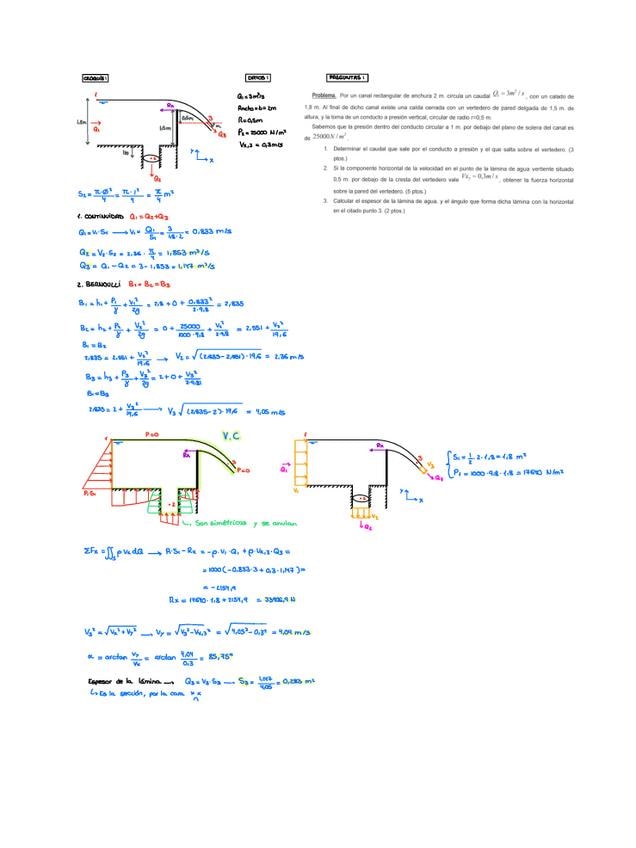 CROQUIS:
DATOS:
PREGUNTAS:
Q₁ = 3m³/s
Ancho = b = 2m
R = 0,5m
P₂ = 25000 N/m²
Vx,3 = 0,3m/s
Problema. Por un canal rectangular de anchura 2 m. circula un caudal Q₁ = 3m³/s, con un calado de
1,8 m. Al final de dicho canal existe una caída cerrada con un vertedero de pared delgada de 1,5 m. de
altura, y la toma de un conducto a presión vertical, circular de radio r=0,5 m.
Sabemos que la presión dentro del conducto circular a 1 m. por debajo del plano de solera del canal es
de 25000 N/m².
1. Determinar el caudal que sale por el conducto a presión y el que salta sobre el vertedero. (3
ptos.)
2. Si la componente horizontal de la velocidad en el punto de la lámina de agua vertiente situado
0,5 m. por debajo de la cresta del vertedero vale Vx₃ = 0,3m/s, obtener la fuerza horizontal
sobre la pared del vertedero. (5 ptos.)
3. Calcular el espesor de la lámina de agua, y el ángulo que forma dicha lámina con la horizontal
en el citado punto 3. (2 ptos.)
1
1,8m
Q₁
Rx
1,5m
3
Q3
1m
Q₂
Y
X
S₂ = π·Ø²/4 = π·1²/4 = π/4 m²
1. CONTINUIDAD Q₁ = Q₂ + Q₃
Q₁ = V₁·S₁ → V₁ = Q₁/S₁ = 3/1,8·2 = 0,833 m/s
Q₂ = V₂·S₂ = 2,36·π/4 = 1,853 m³/s
Q₃ = Q₁ - Q₂ = 3 - 1,853 = 1,147 m³/s
2. BERNOULLI B₁ = B₂ = B₃
B₁ = h₁ + P₁/γ + V₁²/2g = 2,8 + 0 + 0,833²/2·9,8 = 2,835
B₂ = h₂ + P₂/γ + V₂²/2g = 0 + 25000/1000·9,8 + V₂²/2·9,8 = 2,551 + V₂²/19,6
B₁ = B₂
2,835 = 2,551 + V₂²/19,6 → V₂ = √(2,835-2,551)·19,6 = 2,36 m/s
B₃ = h₃ + P₃/γ + V₃²/2g = 2 + 0 + V₃²/2·9,81
B₁ = B₃
2,835 = 2 + V₃²/19,6 → V₃ √(2,835-2)·19,6 = 4,05 m/s
1
P=0
V.C
Rx
3
P=0
P₁·S₁
Son simétricas y se anulan
1
Rx
Q₁
V₁
3
V₃
Q₃
V₂
Q₂
Y
X
S₁ = 1/2·2·1,8 = 1,8 m²
P₁ = 1000·9,8·1,8 = 17640 N/m²
ΣFx = ∬ρVxdQ → P₁·S₁ - Rx = -ρ·V₁·Q₁ + ρ·Vx,3·Q₃ =
= 1000(-0,833·3 + 0,3·1,147) =
= -2154,9
Rx = 17640·1,8 + 2154,9 = 33906,9 N
V₃² = √Vx² + Vy² → Vy = √V₃² - Vx,3² = √4,05² - 0,3² = 4,04 m/s
α = arctan Vy/Vx = arctan 4,04/0,3 = 85,75°
Espesor de la lámina → Q₃ = V₃·S₃ → S₃ = 1,147/4,05 = 0,283 m²
↳ Es la sección, por la cara